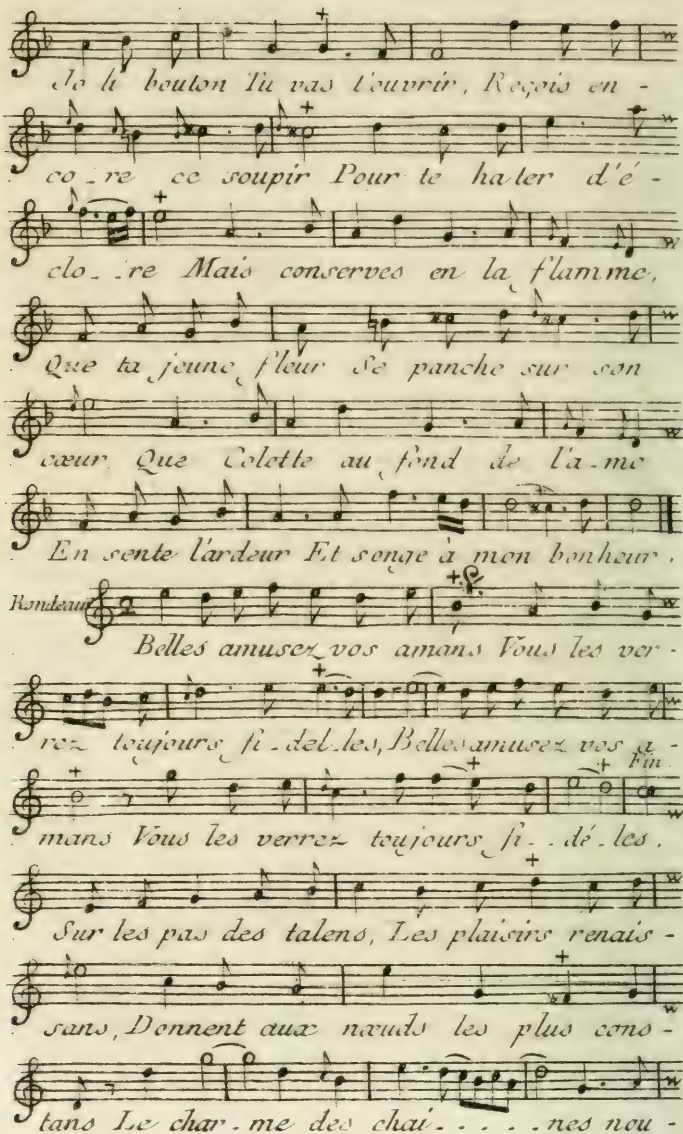 Jo li bouton Tu vas t'ouvrir, Reçois en -
co -. re ce soupir Pour te hater d'é -
clo -. re Mais conserves en la flamme,
Que ta jeune fleur Se panche sur son
cœur, Que Colette au fond de l'a - me
En sente l'ardeur Et songe à mon bonheur.
Rondeau
Belles amusez vos amans Vous les ver -
rez toujours fi - del - les, Belles amusez vos a -
Fin.
mans Vous les verrez toujours fi - . dé - les.
Sur les pas des talens, Les plaisirs renais -
sans, Donnent aux nœuds les plus cons -
tans Le char - me des chai . . . . . nes nou -